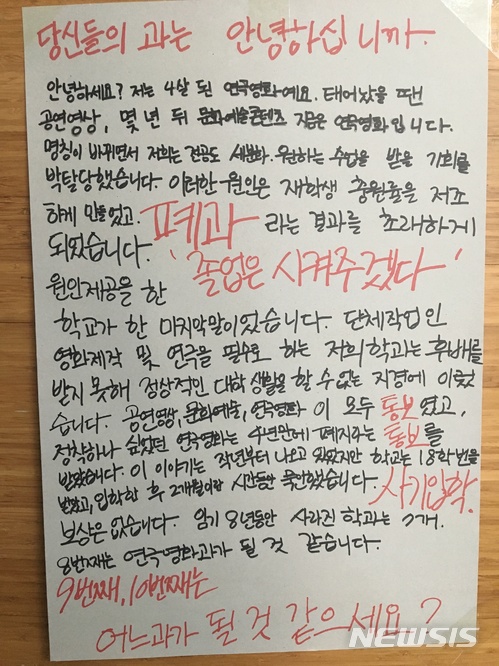 당신들의 과는 안녕하십니까.
안녕하세요? 저는 4살 된 연극영화예요. 태어났을 땐
공연영상, 몇 년 뒤 문화예술콘텐츠 지금은 연극영화입니다.
명칭이 바뀌면서 저희는 전공도 세분화. 원하는 수업을 받을 기회를
박탈당했습니다. 이러한 원인은 재학생 충원률을 저조
하게 만들었고. 폐과 라는 결과를 초래하게
되었습니다. '졸업은 시켜주겠다'
원인제공을 한
학교가 한 마지막말이었습니다. 단체작업인
영화제작 및 연극을 필수로 하는 저희학과는 후배를
받지 못해 정상적인 대학 생활을 할 수 없는 지경에 이르렀
습니다. 공연영상, 문화예술, 연극영화 이 모두 통보였고,
정착하나 싶었던 연극영화는 4년만에 폐지라는 통보를
받았습니다. 이 이야기는 작년부터 나오고 있었지만 학교는 18학번을
받았고, 입학한 후 2개월이란 시간동안 묵인했습니다. 사기입학.
보상은 없습니다. 임기 8년동안 사라진 학과는 7개.
8번째는 연극영화과가 될 것 같습니다.
9번째, 10번째는
어느과가 될 것 같으세요?
NEWSIS